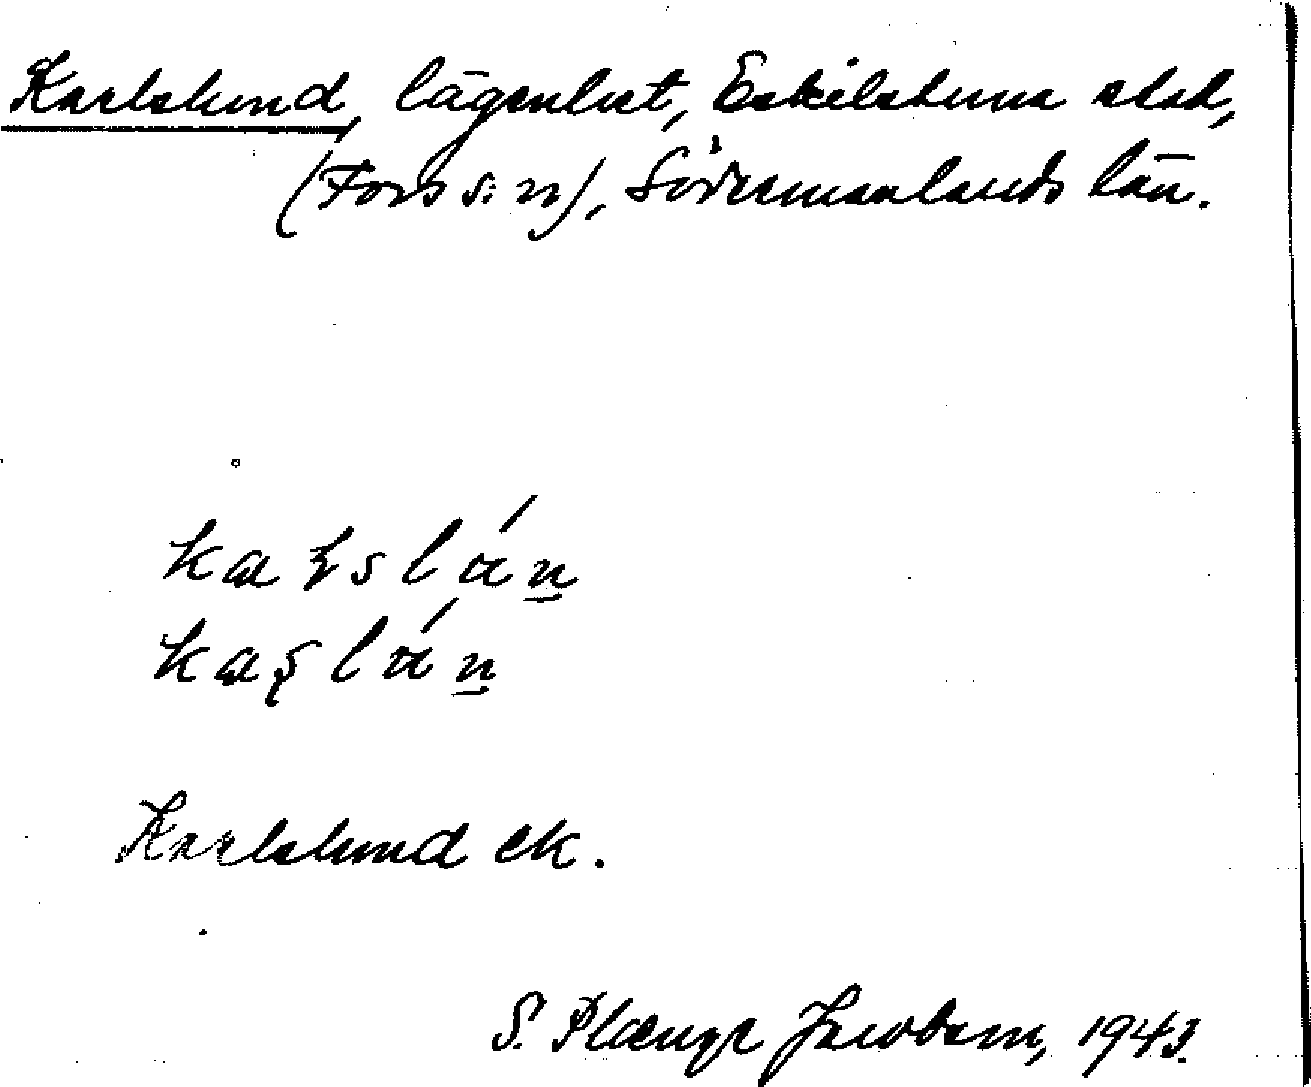 Karlslund, lägenhet, Eskilstuna stad,
(Fors s:n), Södermanlands län.
Karlslund ek.
S. Plænge Jacobson, 1943.